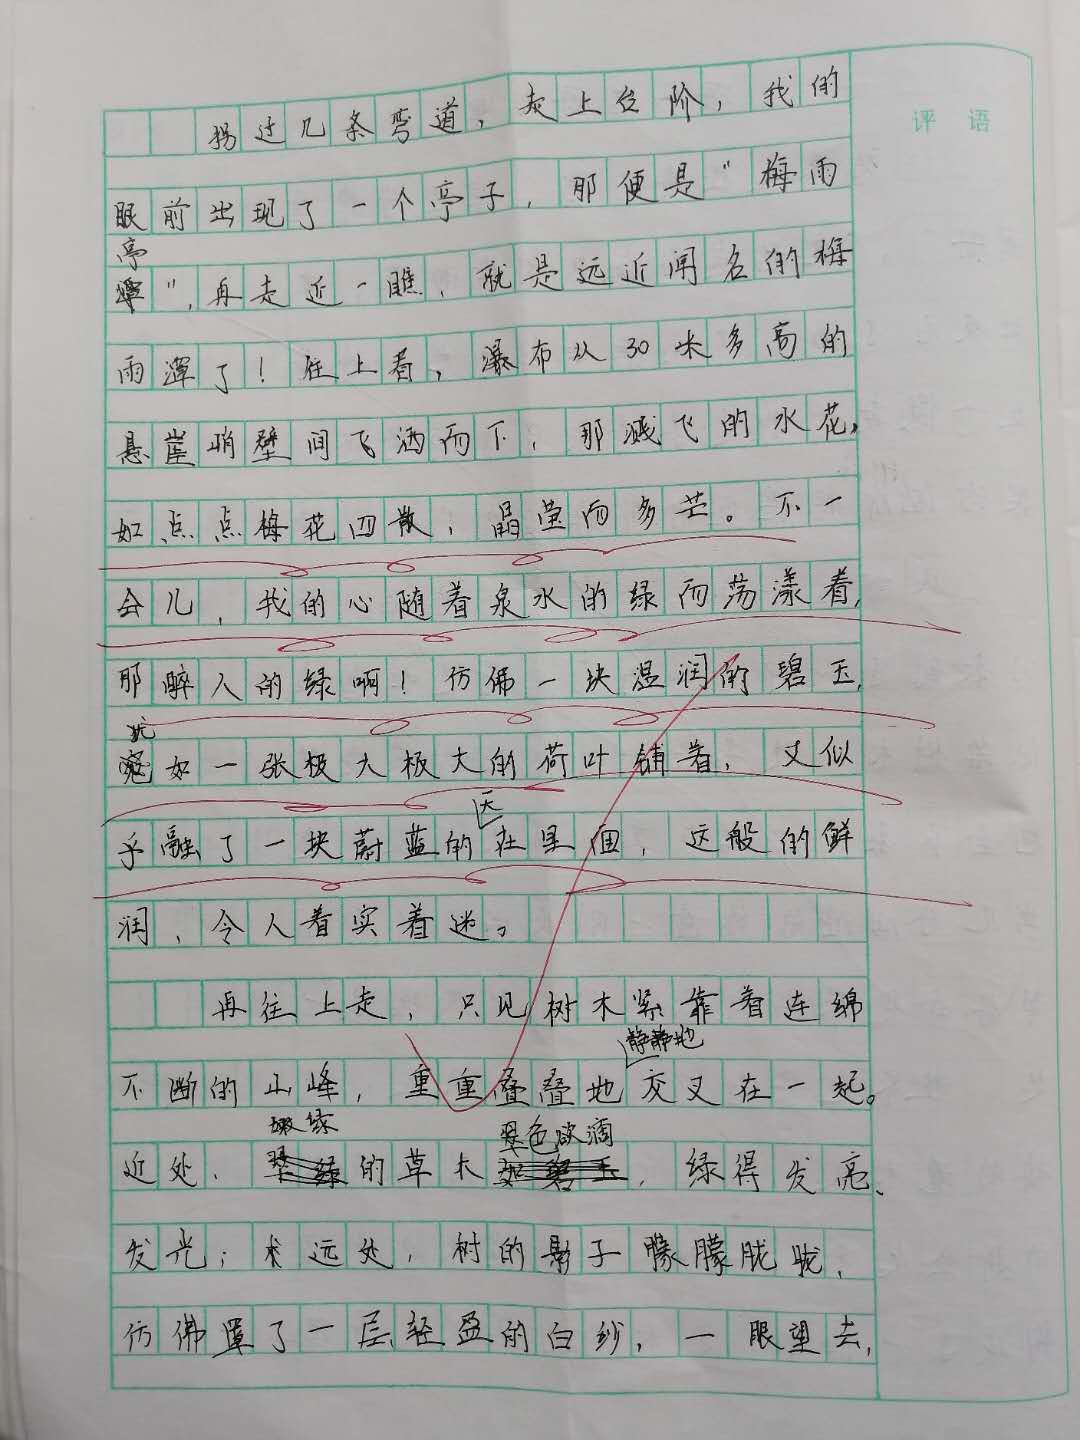 评 语
拐过几条弯道，走上台阶，我的
眼前出现了一个亭子，那便是“梅雨
亭”，再走近一瞧，就是远近闻名的梅
雨潭了！往上看，瀑布从30米多高的
悬崖峭壁间飞洒而下，那溅飞的水花，
如点点梅花四散，晶莹而多芒。不一
会儿，我的心随着泉水的绿而荡漾着，
那醉人的绿啊！仿佛一块温润的碧玉，
犹如一张极大极大的荷叶铺着，又似
乎融了一块蔚蓝的天在里面，这般的鲜
润，令人着实着迷。
再往上走，只见树木紧靠着连绵
不断的山峰，重重叠叠地静静地交叉在一起。
近处，嫩绿的草木翠色欲滴，绿得发亮、
发光；远处，树的影子朦朦胧胧，
仿佛罩了一层轻盈的白纱，一眼望去，